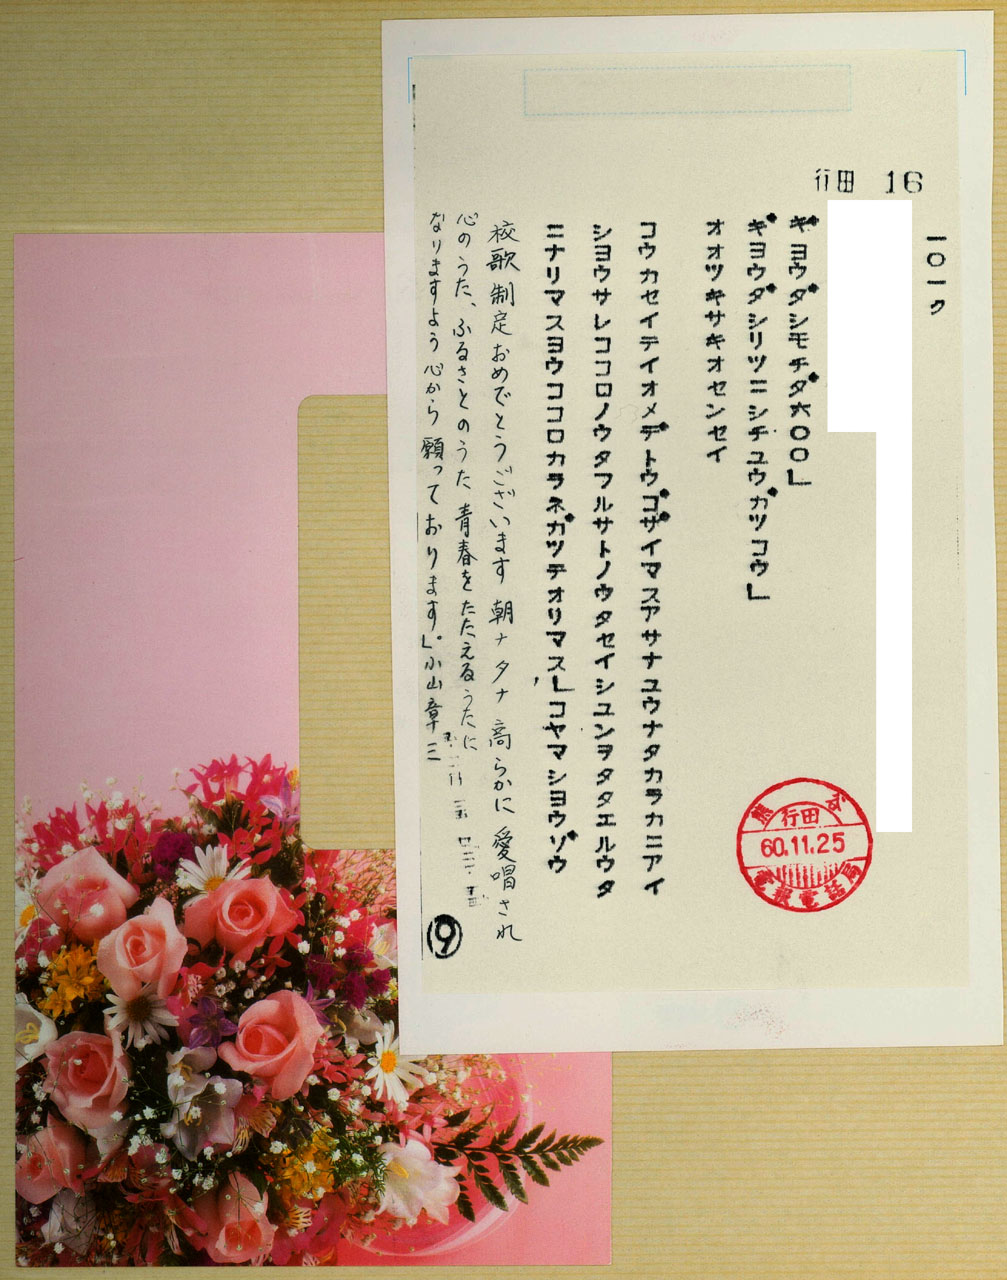 行田 16
一〇一ク
ギヨウダシモチダ六〇〇」
ギヨウダシリツニシチユウガツコウ」
オオツキサキオセンセイ
コウカセイテイオメデトウゴザイマスアサナユウナタカラカニアイ
シヨウサレココロノウタフルサトノウタセイシユンヲタタエルウタ
ニナリマスヨウココロカラネガツテオリマス」コヤマシヨウゾウ
校歌制定おめでとうございます 朝ナ夕ナ 高らかに 愛唱され
心のうた、ふるさとのうた 青春をたたえるうたに
なりますよう 心から 願っております」。小山章三
⑨
行田
60.11.25
電報電話局